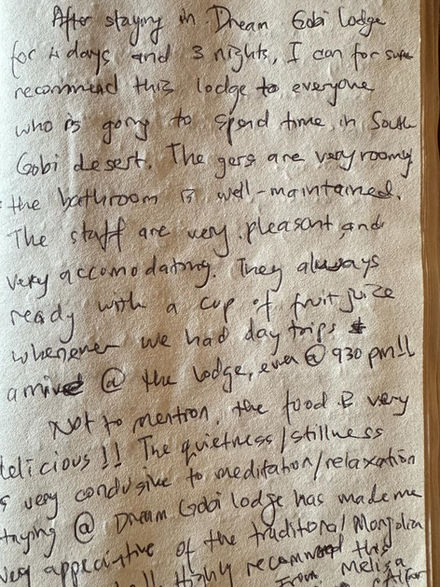 After staying in Dream Gobi lodge
for 4 days and 3 nights, I can for sure
recommend this lodge to everyone
who is going to spend time in South
Gobi desert. The gers are very roomy
the bathroom is well-maintained.
The staff are very pleasant and
very accomodating. They always
ready with a cup of fruit juize
whenever we had day trips &
arrived @ the lodge, even @ 930 pm!!
Not to mention, the food is very
delicious!! The quietness/stillness
s very condusive to meditation/relaxation
taying @ Dream Gobi lodge has made me
very appreciative of the traditional Mongolia
highly recommend this
From Melisa